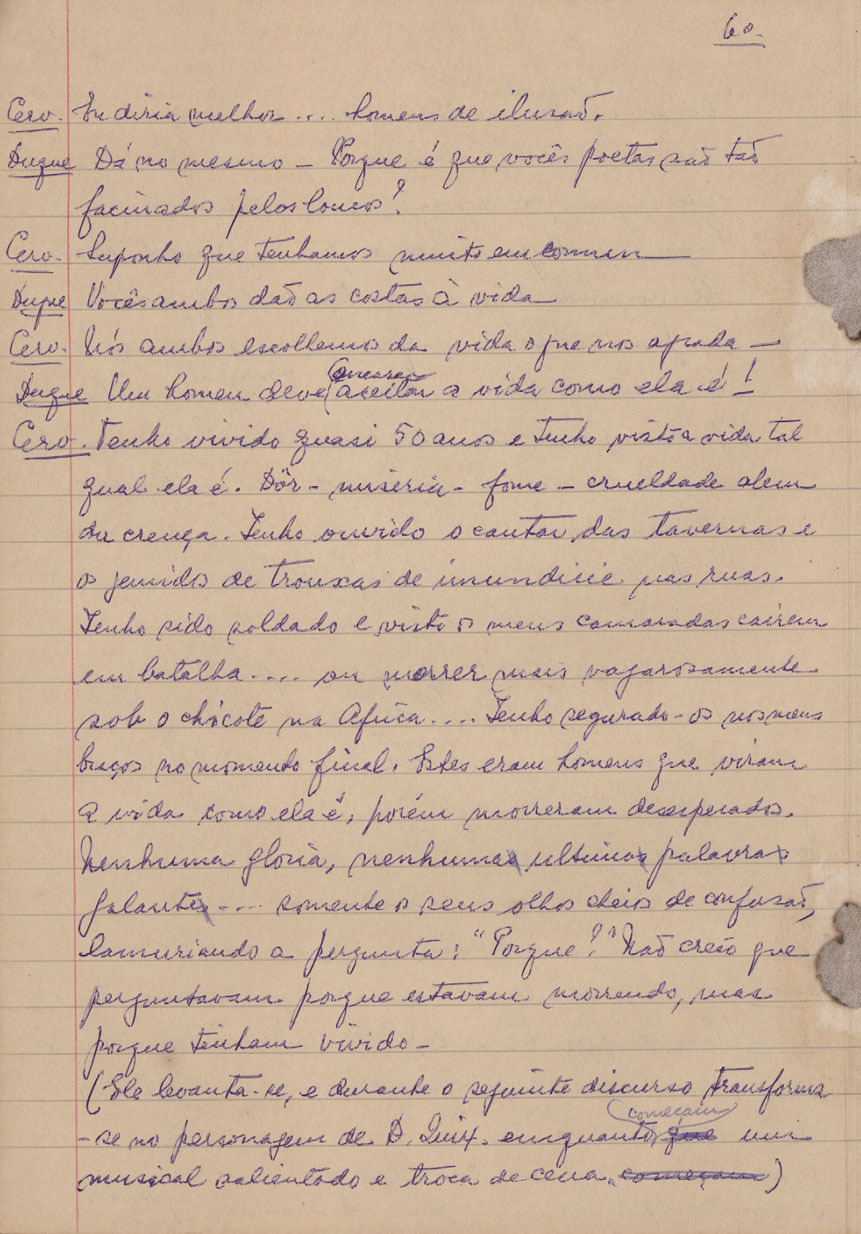 60.
Cerv. Eu diria melhor .... homens de ilusão.
Duque Dá no mesmo - Porque é que vocês poetas são tão
facinados pelos loucos?
Cerv. Suponho que tenhamos muito em comum
Duque Vocês ambos dão as costas à vida
Cerv. Nós ambos escolhemos da vida o que nos agrada -
Duque Um homem deve (encarar aceitar a vida como ela é!
Cerv. Tenho vivido quasi 50 anos e tenho visto a vida tal
qual ela é. Dôr - miséria - fome - crueldade alem
da crença. Tenho ouvido o cantar das tavernas e
os gemidos de trouxas de imundicie nas ruas.
Tenho sido soldado e visto os meus camaradas cairem
em batalha .... ou morrer mais vagarosamente
sob o chicote na Africa .... Tenho segurado-os nos meus
braços no momento final. Estes eram homens que viram
a vida como ela é, porém morreram desesperados.
Nenhuma gloria, nenhumas ultimas palavras
galantes .... somente os seus olhos cheios de confusão,
lamuriando a pergunta: "Porque?" Não creio que
perguntavam porque estavam morrendo, mas
porque tinham vivido -
(Ele levanta-se, e durante o seguinte discurso transforma
-se no personagem de D. Quix. enquanto começam que um
musical salientado e troca de cena começam)